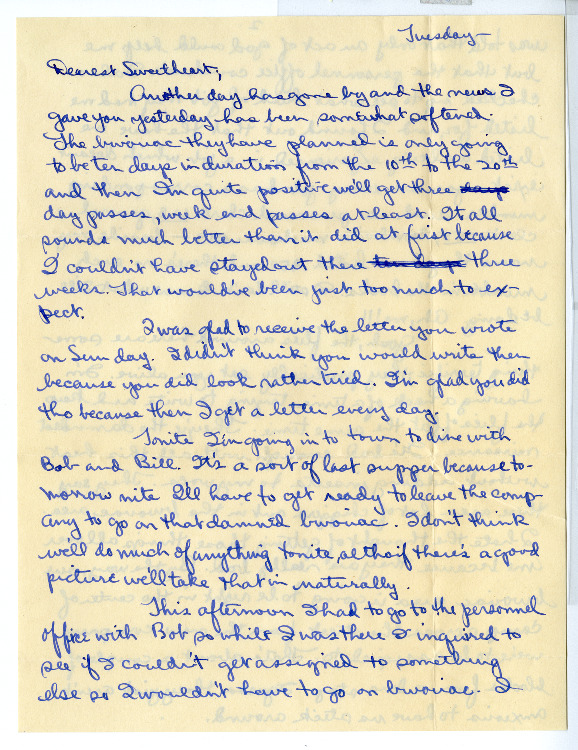 Tuesday—
Dearest Sweetheart,
Another day has gone by and the news I
gave you yesterday has been, somewhat softened.
The bwouac they have planned is only going
to be ten days in duration, from the 10th to the 20th
and then I'm quite positive we'll get three days
day passes, week end passes at least. It all
sounds much better than it did at first because
I couldn't have stayed out there ten days three
weeks. That would've been just too much to ex-
pect.
I was glad to receive the letter you wrote
on Sunday. I didn't think you would write then
because you did look rather tried. I'm glad you did
tho because then I get a letter every day.
Tonite I'm going in to town to dine with
Bob and Bill. It's a sort of last supper because to-
morrow nite I'll have to get ready to leave the comp-
any to go on that damned bwouac. I don't think
we'll do much of anything tonite, altho if there's a good
picture we'll take that in naturally.
This afternoon I had to go to the personnel
office with Bob so while I was there I inquired to
see if I couldn't get assigned to something
else so I wouldn't have to go on bwouac. I